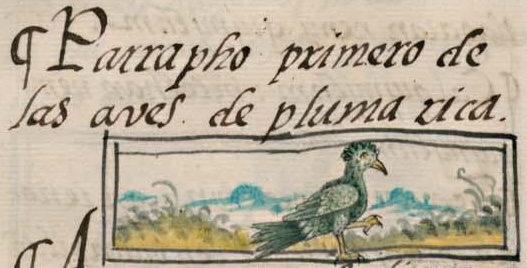 ¶ Parrapho primero de
las aves. de pluma rica.